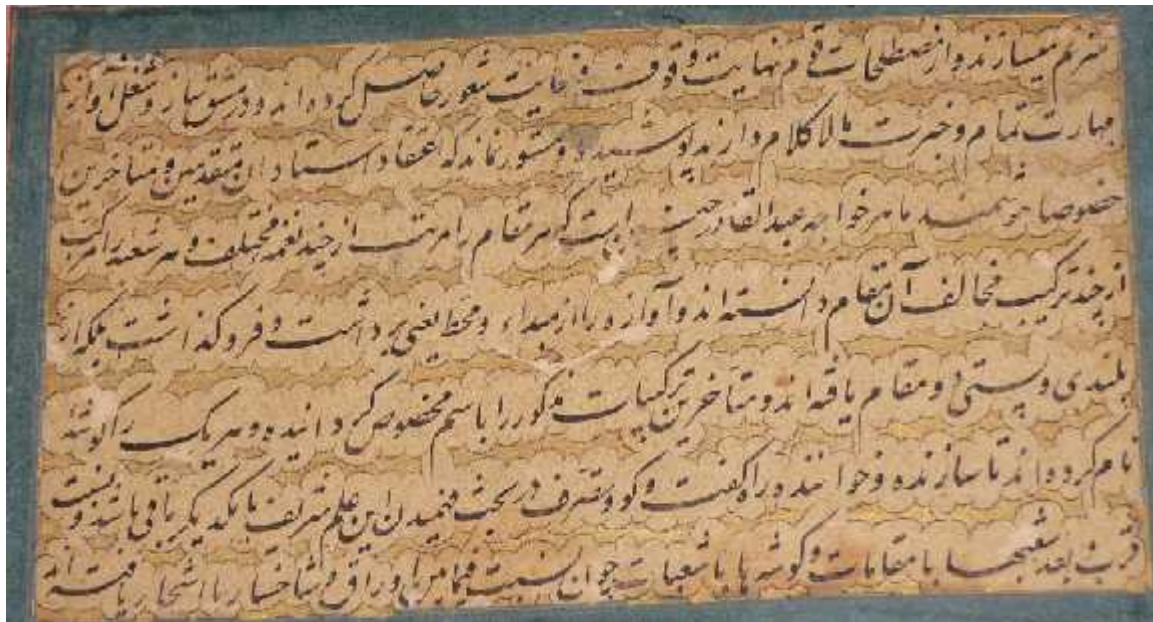 مترنم میسازند و از مصطلحات قوم نهایت وقوف و غایت شعور حاصل کرده اند و در مشق ساز و شغل آواز
مهارت تمام و خبرت مالاکلام دارند پوشیده و مستور نماند که اعتقاد استادان متقدمین و متاخرین
خصوصا خوشمند ماهر خواجه عبدالقادر چنین است که هر مقام را مرتب از چند نغمه مختلف و هر شعبه را مرکب
از چند ترکیب مخالف آن مقام دانسته اند و آوازه را از مبداء و محط یعنی برداشت و فروگذاشت بلکه از
بلندی و پستی دو مقام یافته اند و متأخرین ترکیبات مذکور را باسم مخصوص گردانیده و هر یک را گوشه
نام کرده اند تا سازنده و خواننده در راه گفت و گو و تصرف در بحث فهمیدن این علم شریف با یکدیگر باقی باشد و نسبت
قرب بعد شعبها با مقامات و گوشه ها با شعبات چون نسبت فیمابین اوراق و شاخسار با اشجار یافته اند